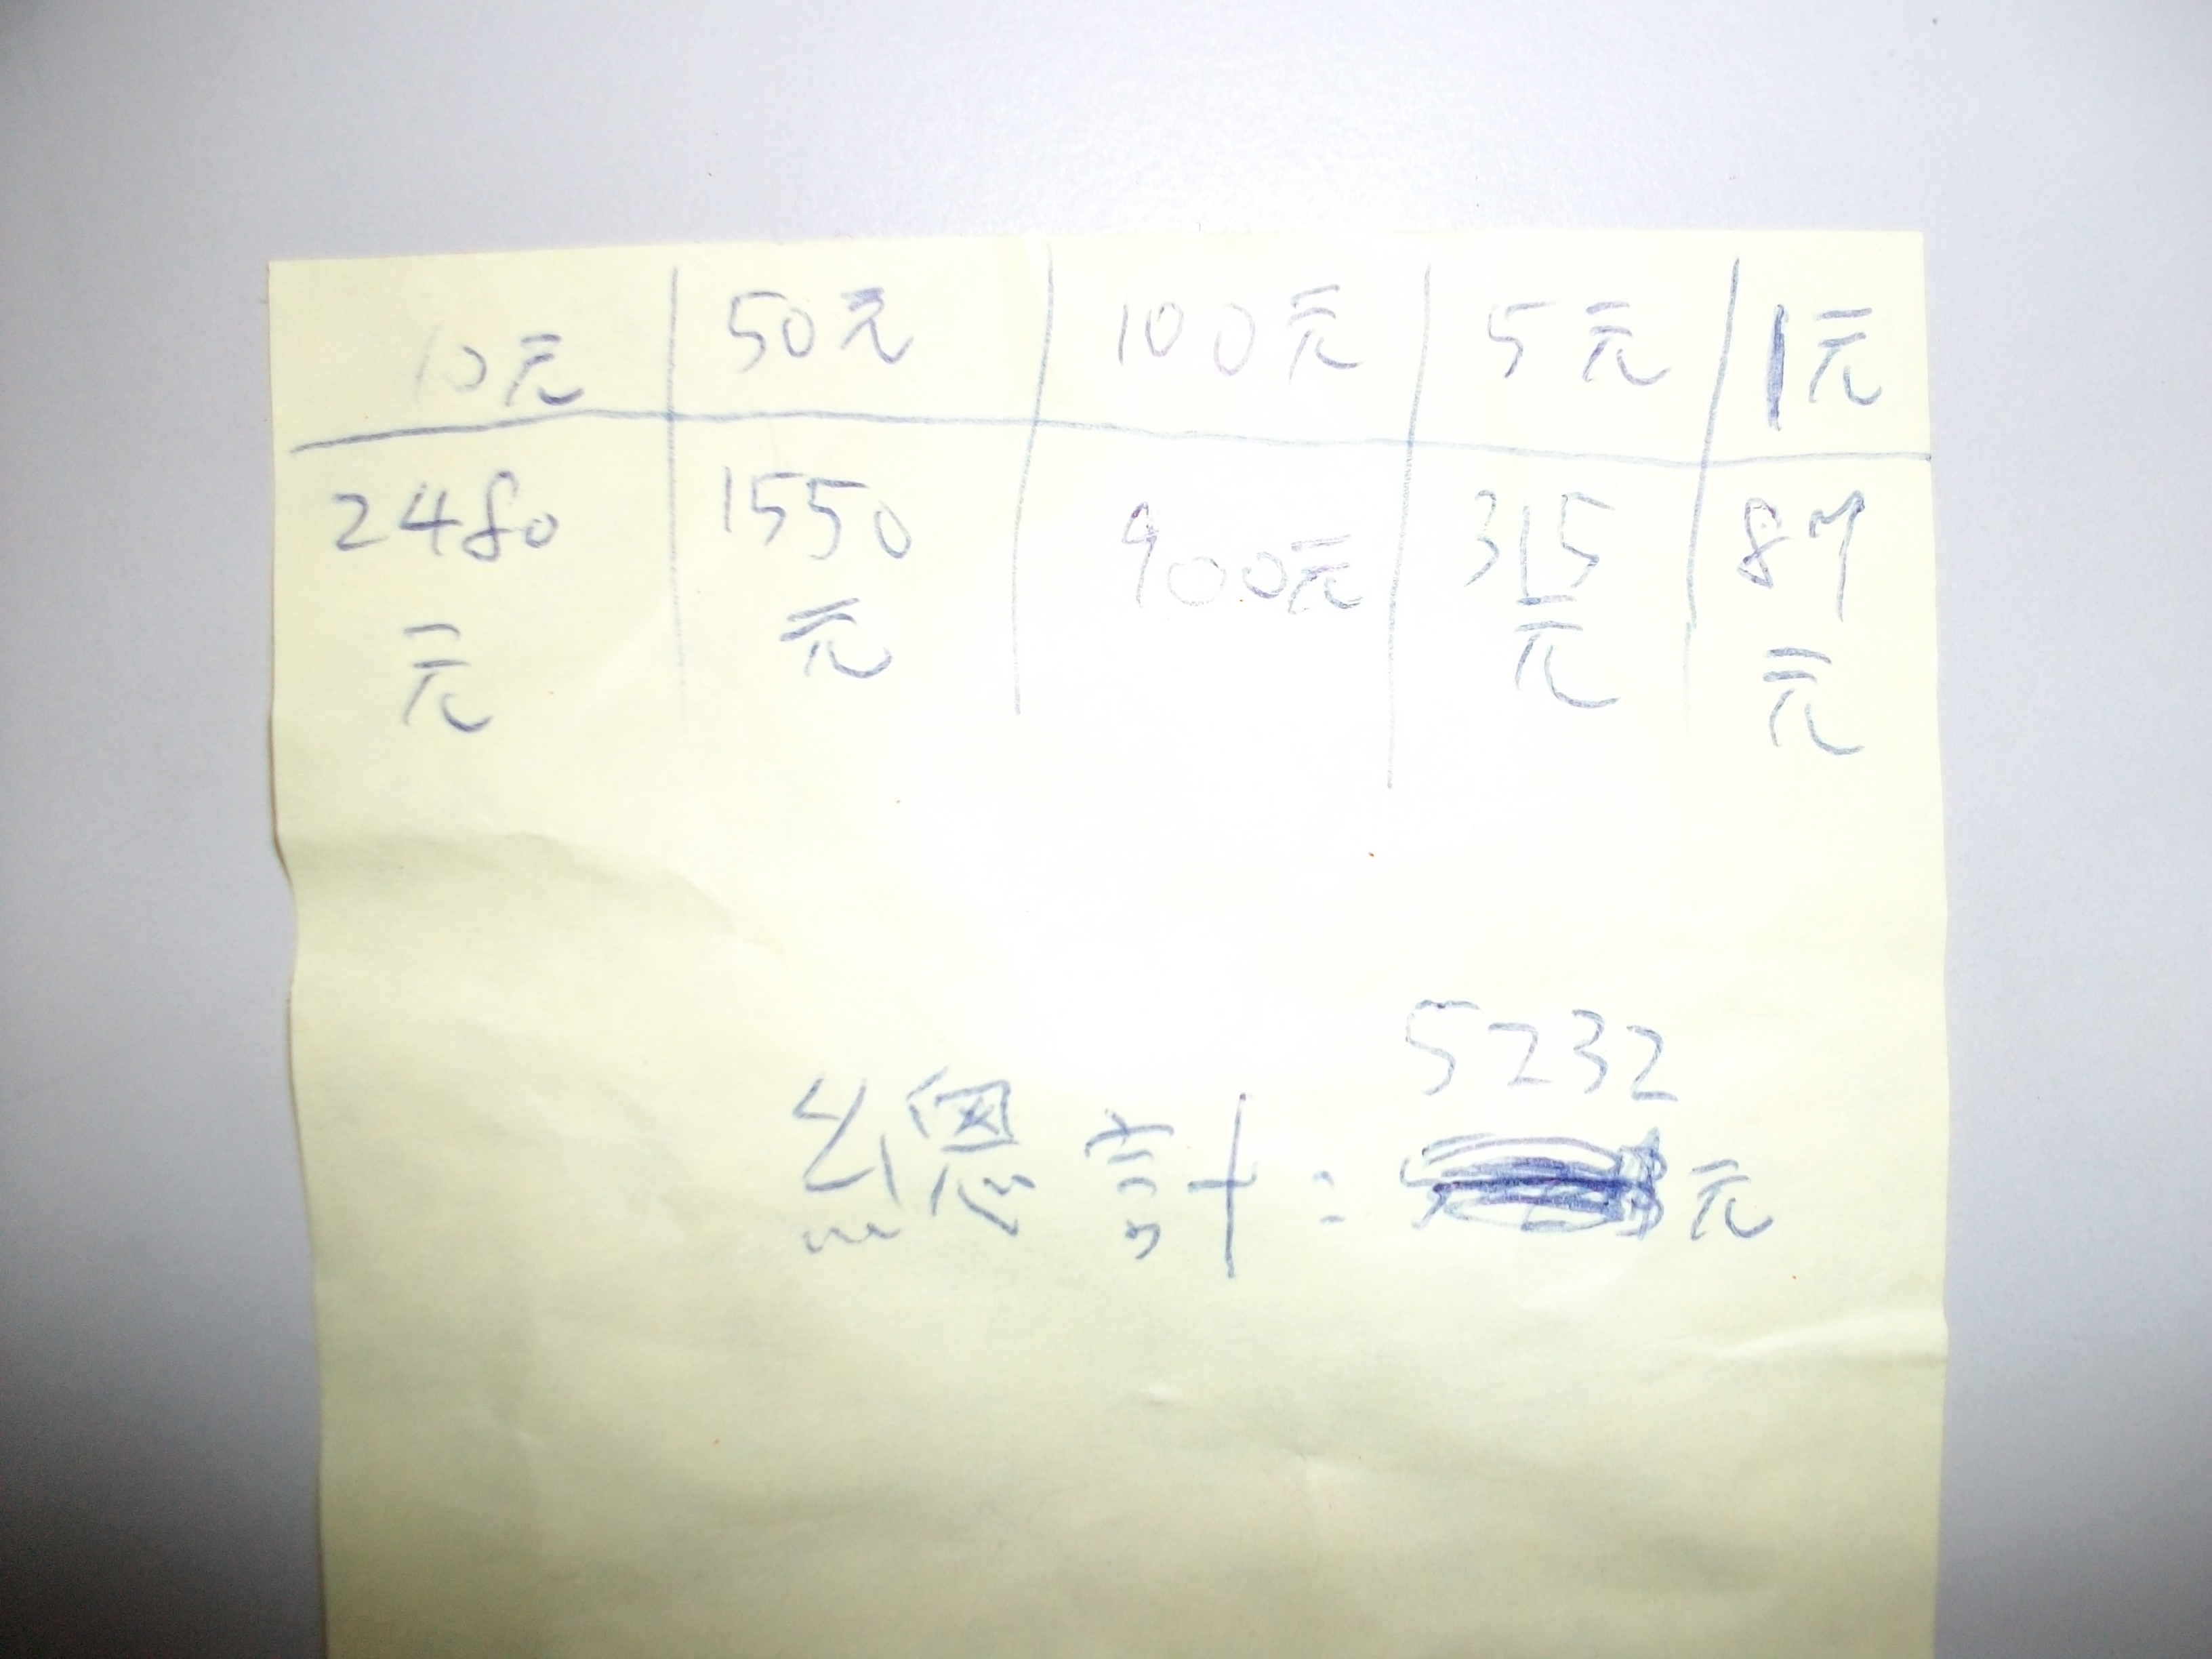 10元 50元 100元 5元 1元
2480 1550 900元 315 87
元 元 元 元
5232
總計: 元